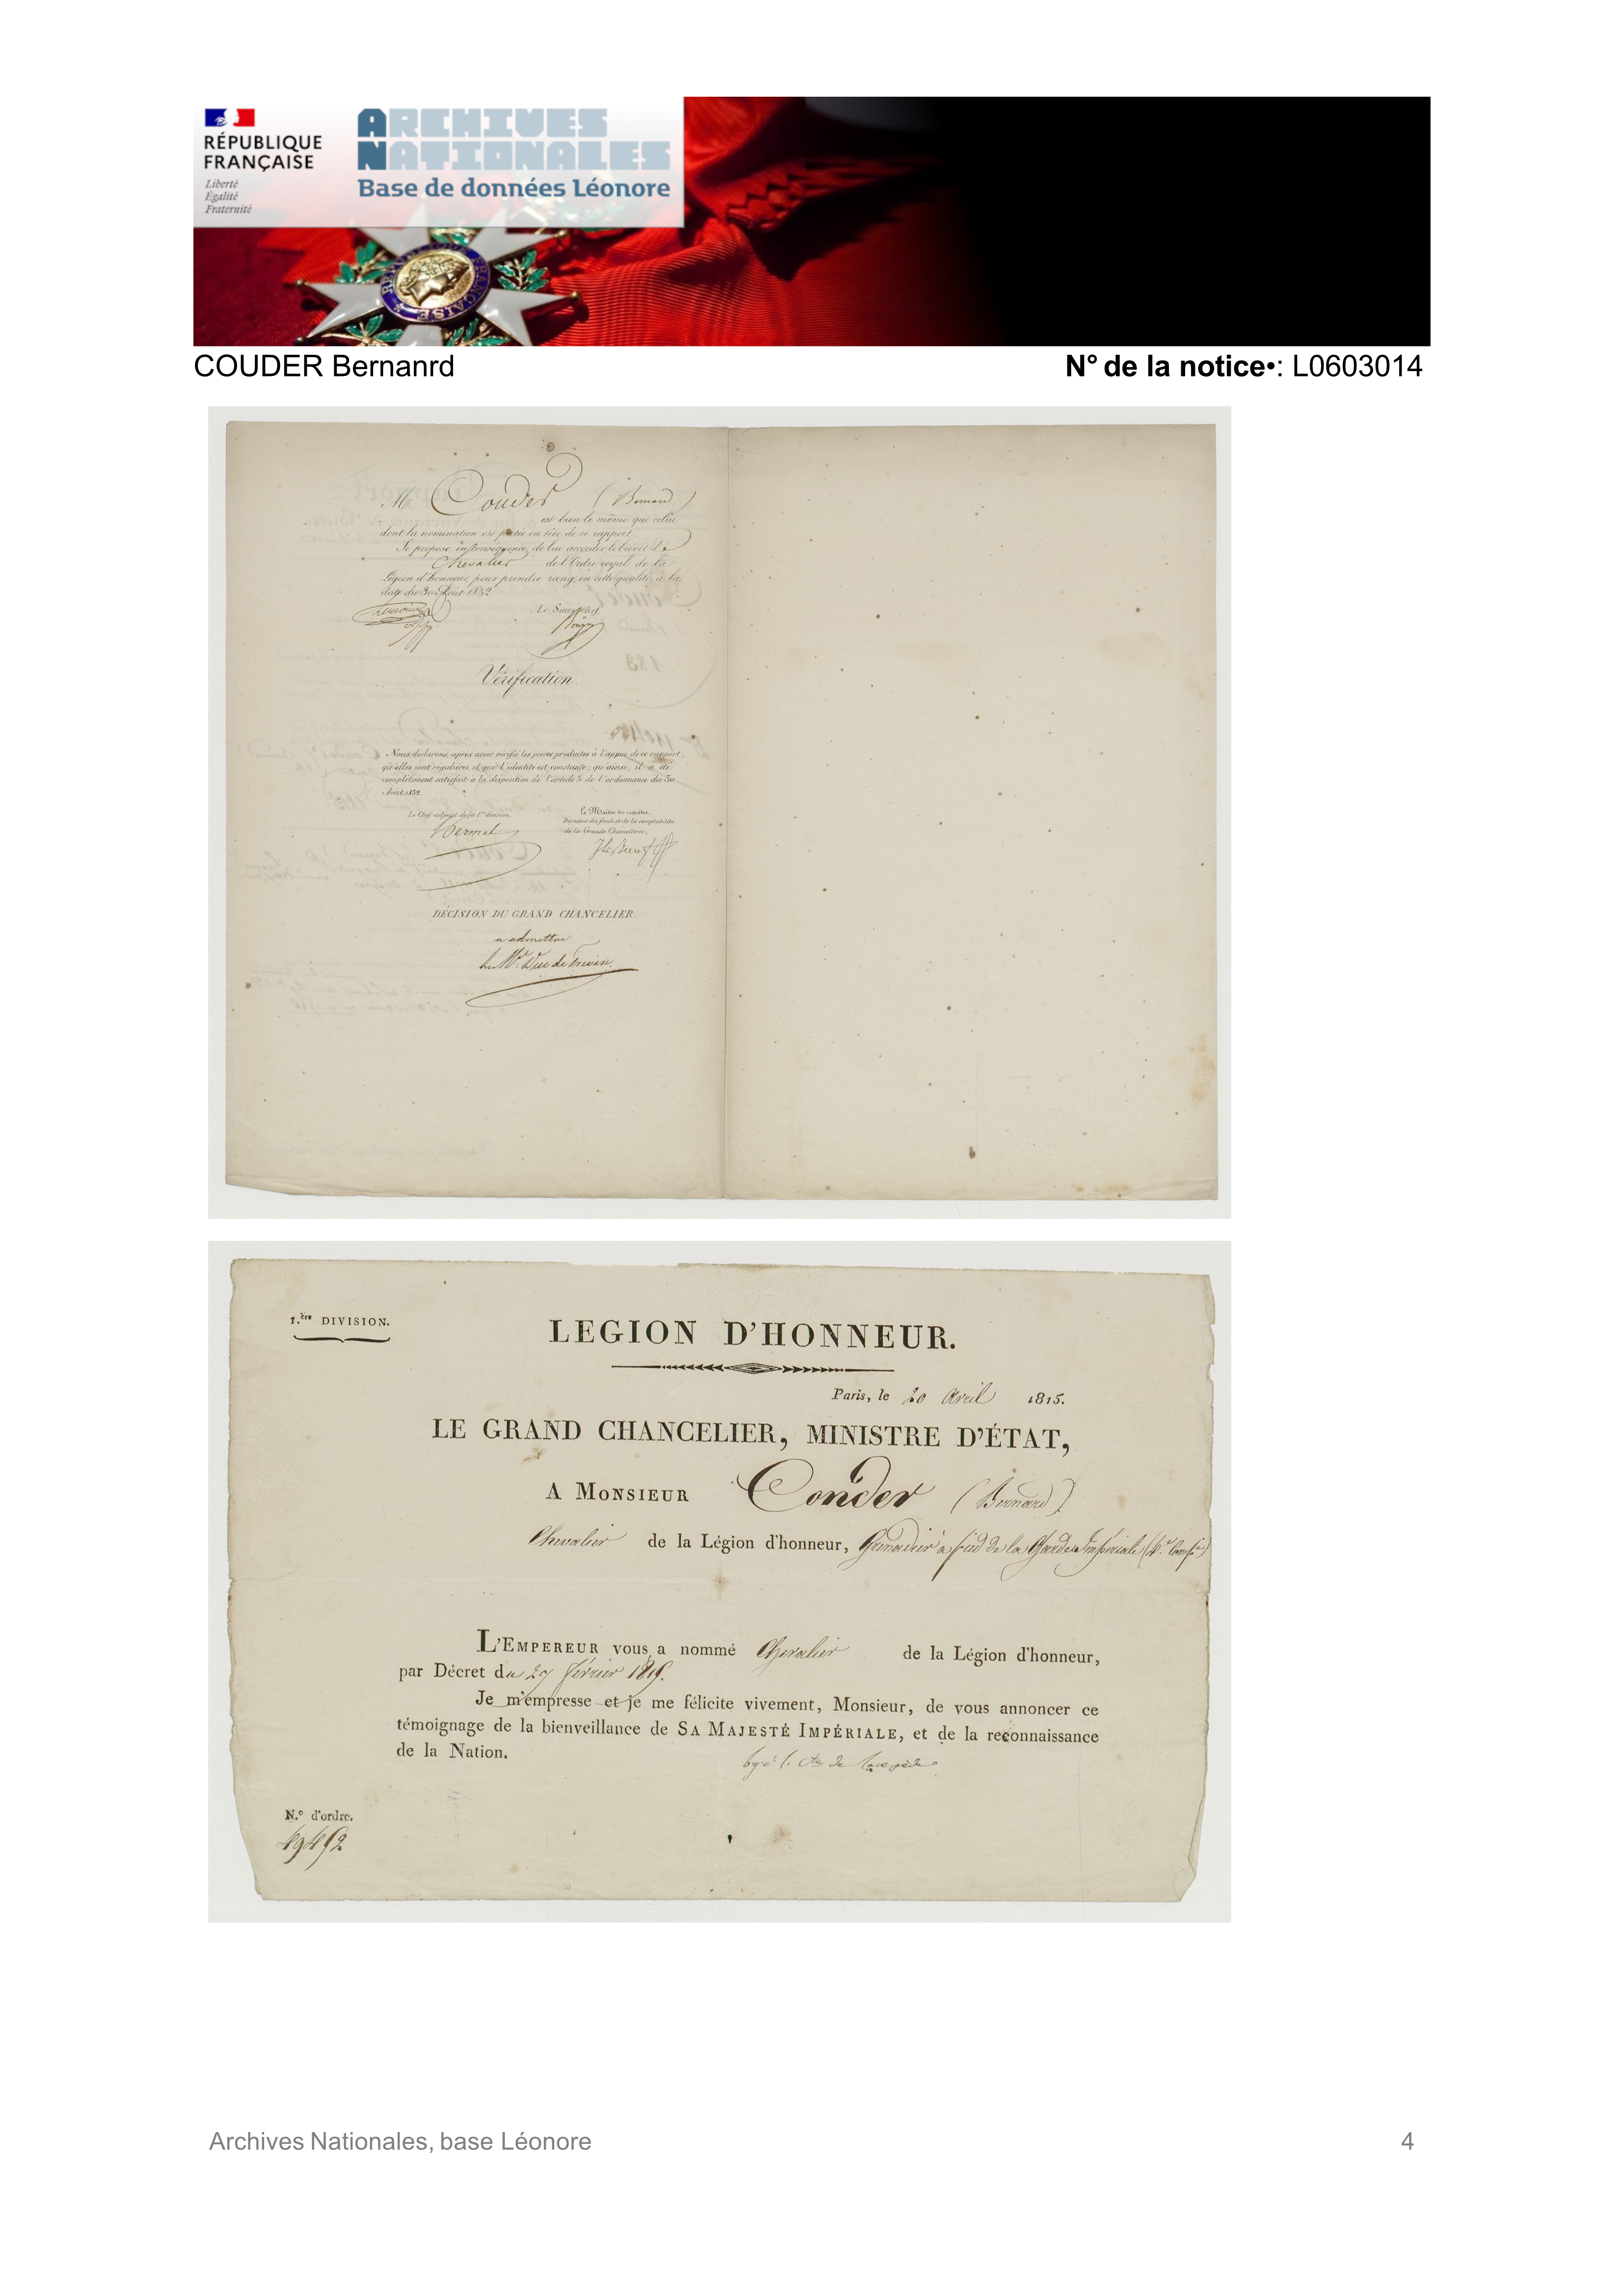 RÉPUBLIQUE
FRANÇAISE
Liberté
Égalité
Fraternité
ARCHIVES
NATIONALES
Base de données Léonore
COUDER Bernanrd
N° de la notice•: L0603014
M Couder (Bernard)
est bien le même que celui
dont la nomination est portée en tête de ce rapport.
Je propose, en conséquence, de lui accorder le brevet de
Chevalier de l'Ordre royal de la
Légion d'honneur, pour prendre rang, en cette qualité, à la
date du 30 Août 1832
Le Sous-chef,
Vérification.
Nous déclarons, après avoir vérifié les pièces produites à l'appui de ce rapport,
qu'elles sont régulières, et que l'identité est constante; qu'ainsi il a été
complètement satisfait à la disposition de l'article 5 de l'ordonnance du 30
Août 1832.
Le Chef adjoint de la 1re division,
Le Maître des requêtes,
Directeur des fonds et de la comptabilité
de la Grande Chancellerie,
DÉCISION DU GRAND CHANCELIER.
a admettre
Le Mal Duc de Trévise.
1.ère DIVISION.
LEGION D'HONNEUR.
Paris, le 20 Avril 1815.
LE GRAND CHANCELIER, MINISTRE D'ÉTAT,
A MONSIEUR Couder (Bernard)
Chevalier de la Légion d'honneur, Grenadier à pied de la Garde Impériale
L'EMPEREUR vous a nommé Chevalier de la Légion d'honneur,
par Décret du 27 février
Je m'empresse et je me félicite vivement, Monsieur, de vous annoncer ce
témoignage de la bienveillance de SA MAJESTÉ IMPÉRIALE, et de la reconnaissance
de la Nation.
de Lacepède
N.° d'ordre.
Archives Nationales, base Léonore
4